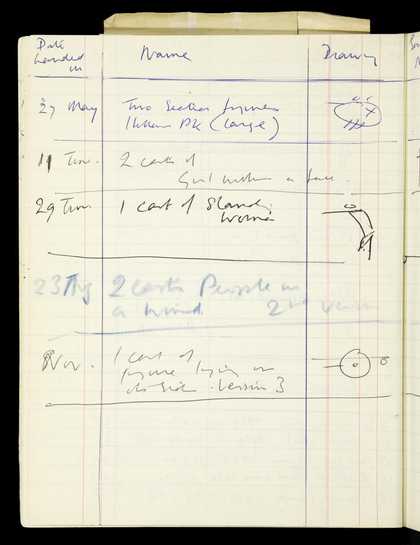 Date handed in Name Drawing
27 May Two Section figures
(Large)
11 Jun. 2 casts of
Girl with a
29 Jun 1 cast of Standing
Woman
23 Aug 2 casts People in
a wind. 2nd
Nov. 1 cast of
figure lying on
its Side. Version 3